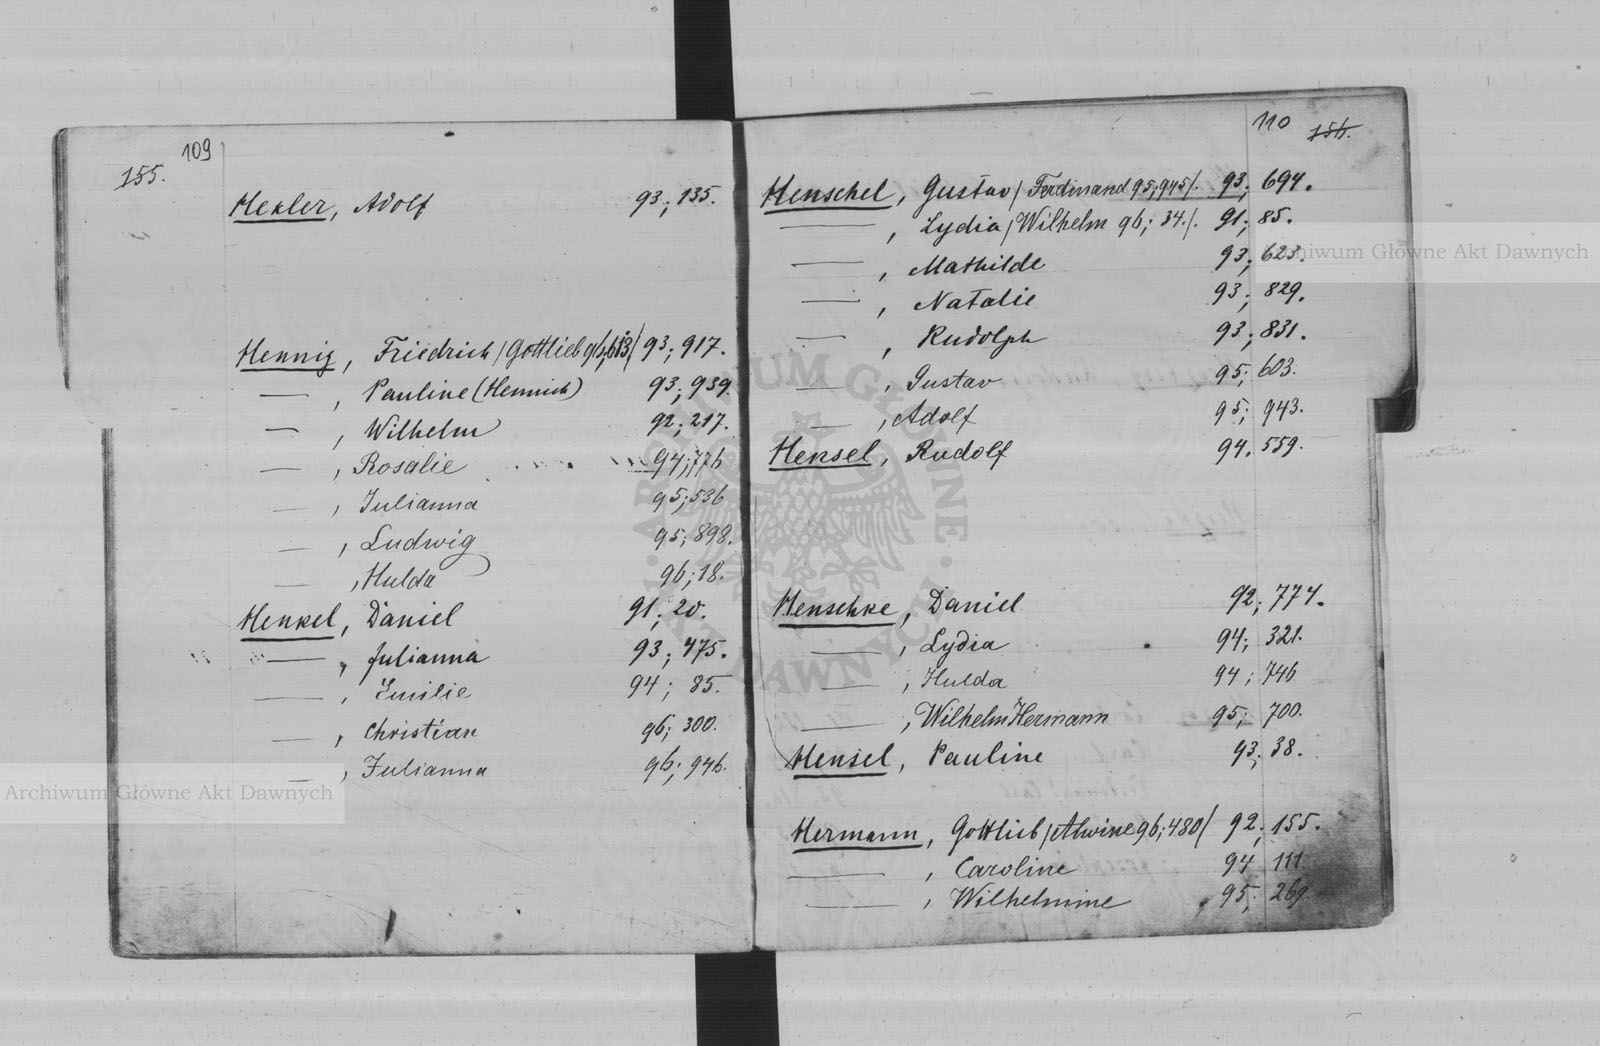 109
155.
Hekler, Adolf 93; 135.
Hennig, Friedrich /Gottlieb 96; 613/ 93; 917.
— , Pauline (Hennich) 93; 939.
— , Wilhelm 92; 217.
— , Rosalie 94; 776
— , Julianna 95; 536
— , Ludwig 95; 898.
— , Hulda 96; 18.
Henkel, Daniel 91; 20.
— , Julianna 93; 475.
— , Emilie 94; 85.
— , Christian 96; 300.
— , Julianna 96; 946.
110
156.
Henschel, Gustav / Ferdinand 95; 945/. 93; 694.
— , Lydia /Wilhelm 96; 34./. 91; 85.
— , Mathilde 93; 623.
— , Natalie 93; 829.
— , Rudolph 93; 831.
— , Gustav 95; 603.
— , Adolf 95; 943.
Hensel, Rudolf 94. 559.
Henschke, Daniel 92; 774.
— , Lydia 94; 321.
— , Hulda 94; 746
— , Wilhelm Hermann 95; 700.
Hensel, Pauline 93; 38.
Hermann, Gottlieb /Alwine 96; 480/ 92; 155.
— , Caroline 94 111.
— , Wilhelmine 95; 269.
Archiwum Główne Akt Dawnych
Archiwum Główne Akt Dawnych
ARCHIWUM GŁÓWNE AKT DAWNYCH